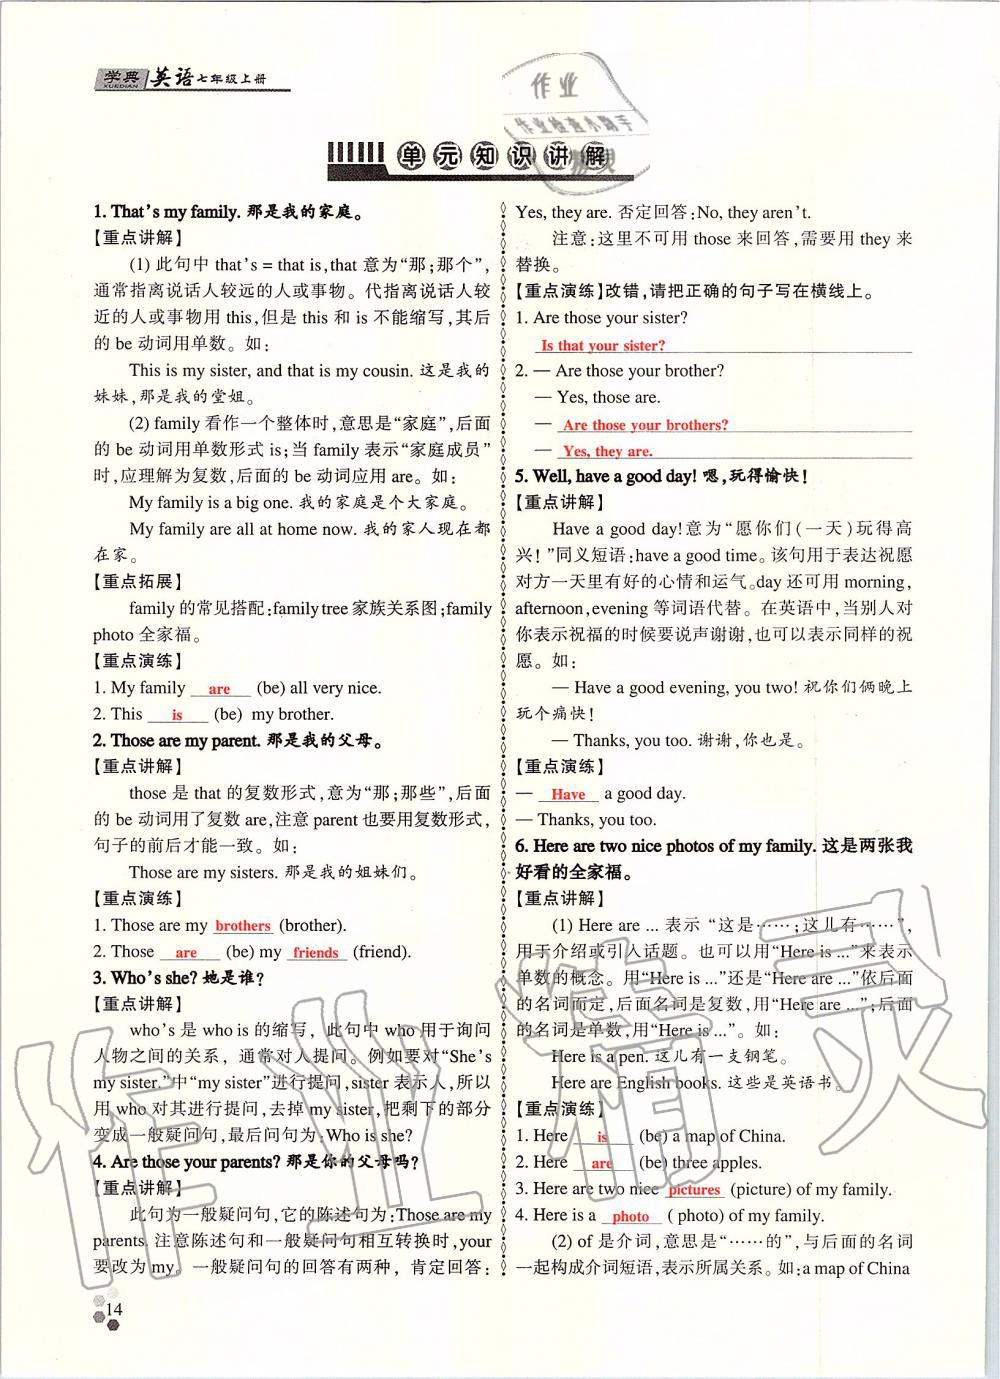 学典
XUEDIAN
英语七年级上册
作业
作业检查小助手
单元知识讲解
1. That's my family. 那是我的家庭。
【重点讲解】
(1) 此句中 that's = that is,that 意为“那;那个”,
通常指离说话人较远的人或事物。代指离说话人较
近的人或事物用 this,但是 this 和 is 不能缩写,其后
的 be 动词用单数。如:
This is my sister, and that is my cousin. 这是我的
妹妹,那是我的堂姐。
(2) family 看作一个整体时,意思是“家庭”,后面
的 be 动词用单数形式 is;当 family 表示“家庭成员”
时,应理解为复数,后面的 be 动词应用 are。如:
My family is a big one. 我的家庭是个大家庭。
My family are all at home now. 我的家人现在都
在家。
【重点拓展】
family 的常见搭配:family tree 家族关系图;family
photo 全家福。
【重点演练】
1. My family are (be) all very nice.
2. This is (be) my brother.
2. Those are my parent. 那是我的父母。
【重点讲解】
those 是 that 的复数形式,意为“那;那些”,后面
的 be 动词用了复数 are,注意 parent 也要用复数形式,
句子的前后才能一致。如:
Those are my sisters. 那是我的姐妹们。
【重点演练】
1. Those are my brothers (brother).
2. Those are (be) my friends (friend).
3. Who's she? 她是谁?
【重点讲解】
who's 是 who is 的缩写, 此句中 who 用于询问
人物之间的关系, 通常对人提问。例如要对“She's
my sister.”中“my sister”进行提问,sister 表示人,所以
用 who 对其进行提问,去掉 my sister,把剩下的部分
变成一般疑问句,最后问句为:Who is she?
4. Are those your parents? 那是你的父母吗?
【重点讲解】
此句为一般疑问句,它的陈述句为:Those are my
parents. 注意陈述句和一般疑问句相互转换时,your
要改为 my。一般疑问句的回答有两种, 肯定回答:
14
Yes, they are. 否定回答:No, they aren't.
注意:这里不可用 those 来回答,需要用 they 来
替换。
【重点演练】改错,请把正确的句子写在横线上。
1. Are those your sister?
Is that your sister?
2. — Are those your brother?
— Yes, those are.
— Are those your brothers?
— Yes, they are.
5. Well, have a good day! 嗯,玩得愉快!
【重点讲解】
Have a good day!意为“愿你们(一天)玩得高
兴!”同义短语:have a good time。该句用于表达祝愿
对方一天里有好的心情和运气。day 还可用 morning,
afternoon,evening 等词语代替。在英语中,当别人对
你表示祝福的时候要说声谢谢,也可以表示同样的祝
愿。如:
— Have a good evening, you two! 祝你们俩晚上
玩个痛快!
— Thanks, you too. 谢谢,你也是。
【重点演练】
— Have a good day.
— Thanks, you too.
6. Here are two nice photos of my family. 这是两张我
好看的全家福。
【重点讲解】
(1) Here are ... 表示“这是……;这儿有……”,
用于介绍或引人话题。也可以用“Here is ...”来表示
单数的概念。用“Here is ...”还是“Here are ...”依后面
的名词而定,后面名词是复数,用“Here are ...”;后面
的名词是单数,用“Here is ...”。如:
Here is a pen. 这儿有一支钢笔。
Here are English books. 这些是英语书。
【重点演练】
1. Here is (be) a map of China.
2. Here are (be) three apples.
3. Here are two nice pictures (picture) of my family.
4. Here is a photo ( photo) of my family.
(2) of 是介词,意思是“……的”,与后面的名词
一起构成介词短语,表示所属关系。如:a map of China
作业精灵